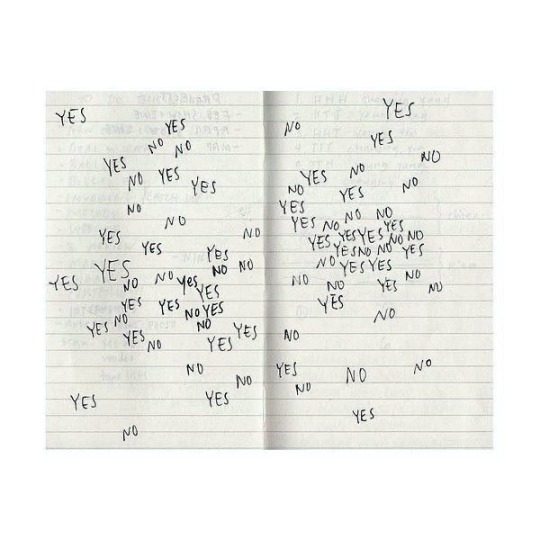 YES
YES
NO NO
YES YES
NO YES
NO
NO
YES NO
YES YES
YES NO NO
YES NO NO yes
YES
YES YES NO YES
NO
YES NO
YES YES
NO YES
NO
NO
YES YES
NO
YES
NO
YES
NO
YES NO
NO YES NO
YES
YES NO NO NO
YES YES YES YES
YES NO NO NO NO
NO YES YES YES
NO NO YES NO NO
YES
NO
NO
YES NO NO
NO
YES